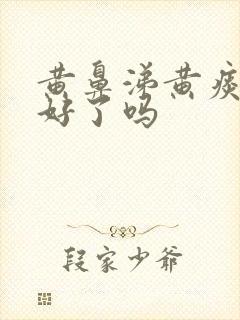 黄鼻涕黄痰
好了吗
段家少爷